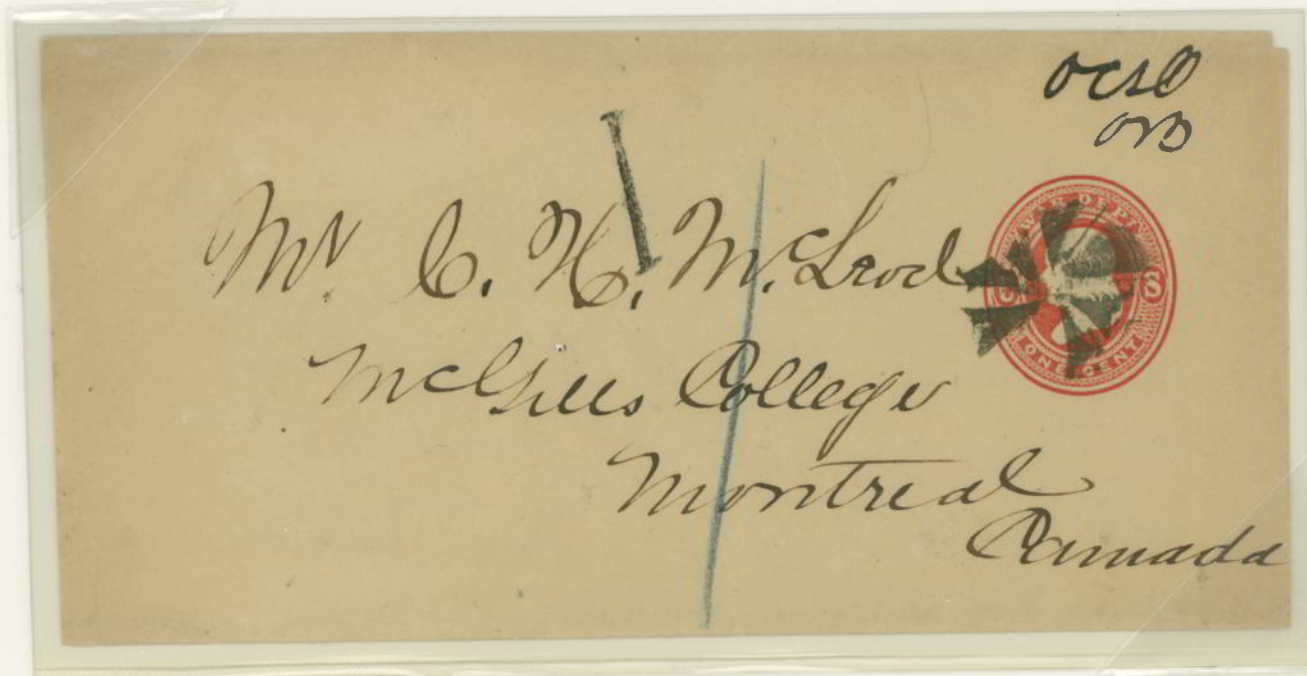 OCSO
Mr C. H. McLeod
McGills College
Montreal
Canada
WAR DEPT.
U S
ONE CENT